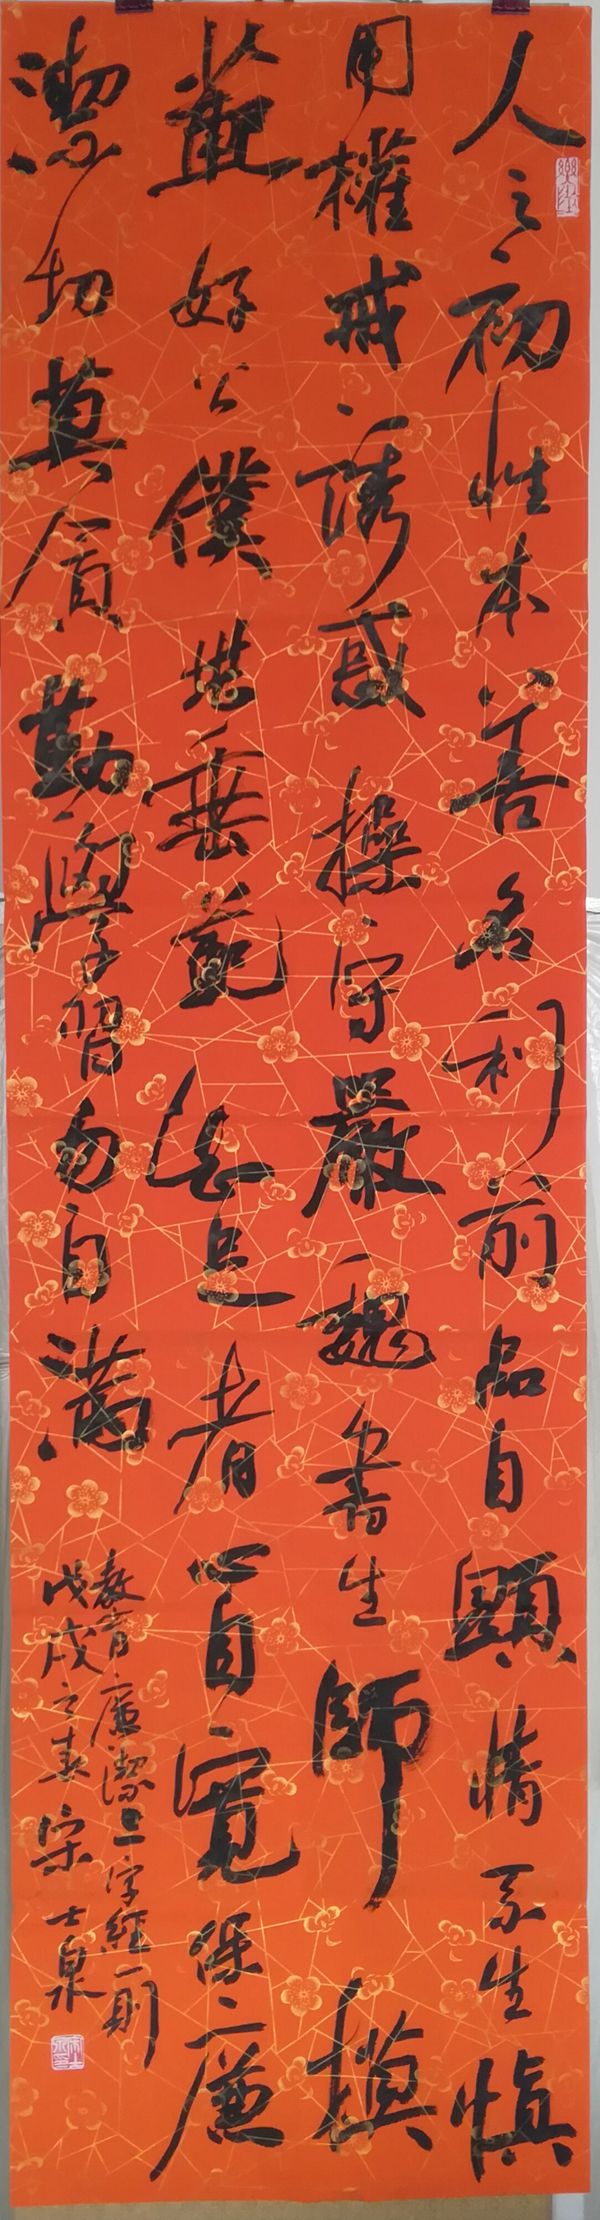 人之初性本善名利前品自顯情系生慎
用權戒誘惑操守嚴魏書生師模
好公僕堪垂範知足者心自寬保廉
潔切莫貪勤學習勿自滿
教育廉潔三字經一則
戊戌之春宋士泉